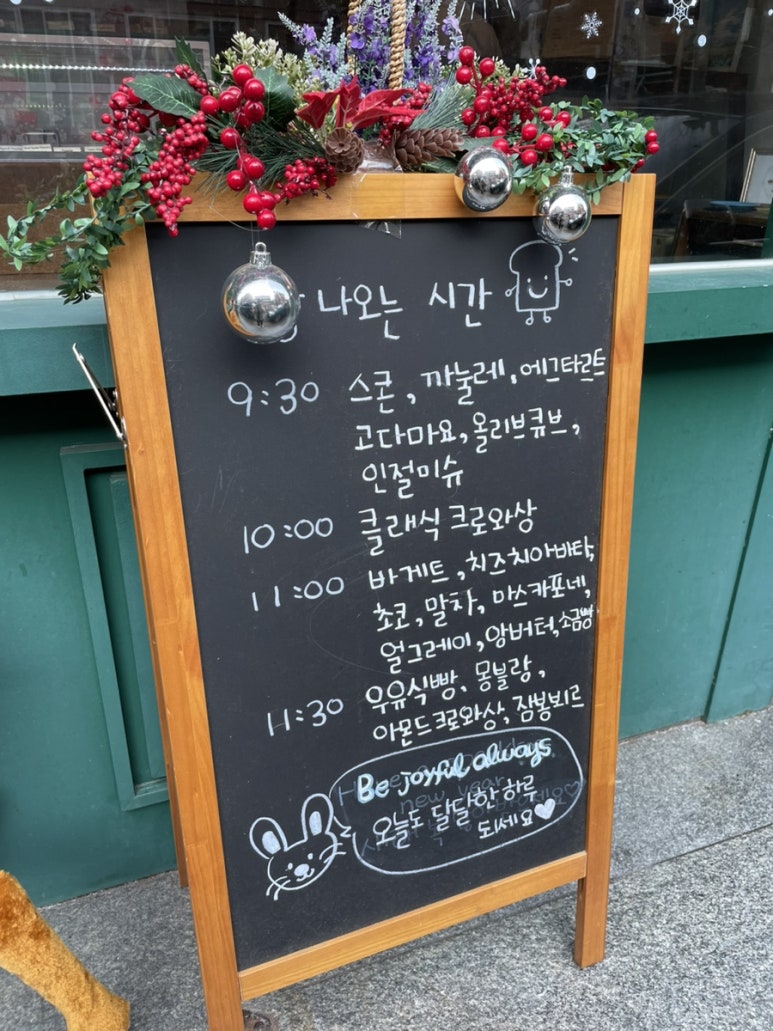 나오는 시간
9:30 스콘, 까눌레, 에그타르트
고다마요, 올리브큐브,
인절미슈
10:00 클래식 크로와상
11:00 바게트, 치즈치아바타,
초코, 말차, 마스카포네,
얼그레이, 앙버터, 소금빵
11:30 우유식빵, 몽블랑,
아몬드크로와상, 잠봉뵈르
Be joyful always
new year
오늘도 달달한 하루
되세요